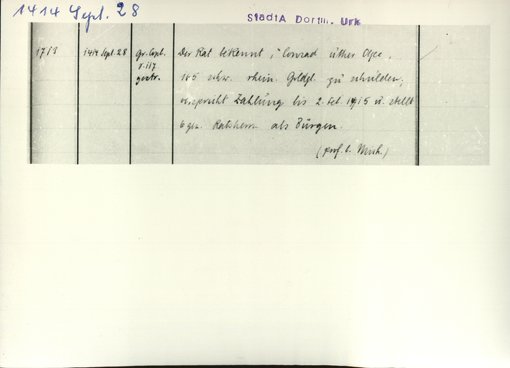 1414 Sept. 28
StadtA Dortm. Urk
1713 1414 Sept. 28 Gr. Copb. Der Rat bekennt, Conrad uther Osee,
I 117 185 schw. rhein. Goldgl. zu schulden,
gestr. verspricht Zahlung bis 2. Febr. 1415 u. stellt
6 gen. Ratsherrn als Bürgen.
(prof. b. Minh.)